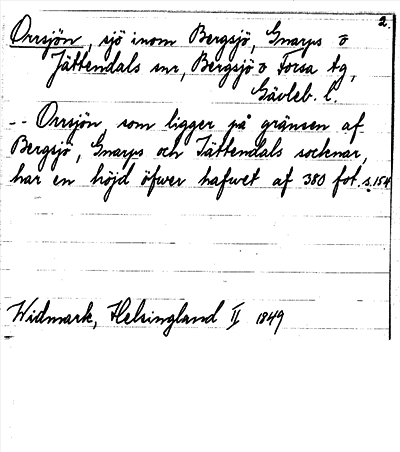 2.
Orrsjön, sjö inom Bergsjö, Gnarps o
Jättendals snr, Bergsjö o Forsa tg,
Gävleb. l.
-- Orrsjön som ligger på gränsen af
Bergsjö, Gnarps och Jättendals socknar,
har en höjd öfwer hafwet af 380 fot. s.154
Widmark, Helsingland II 1849